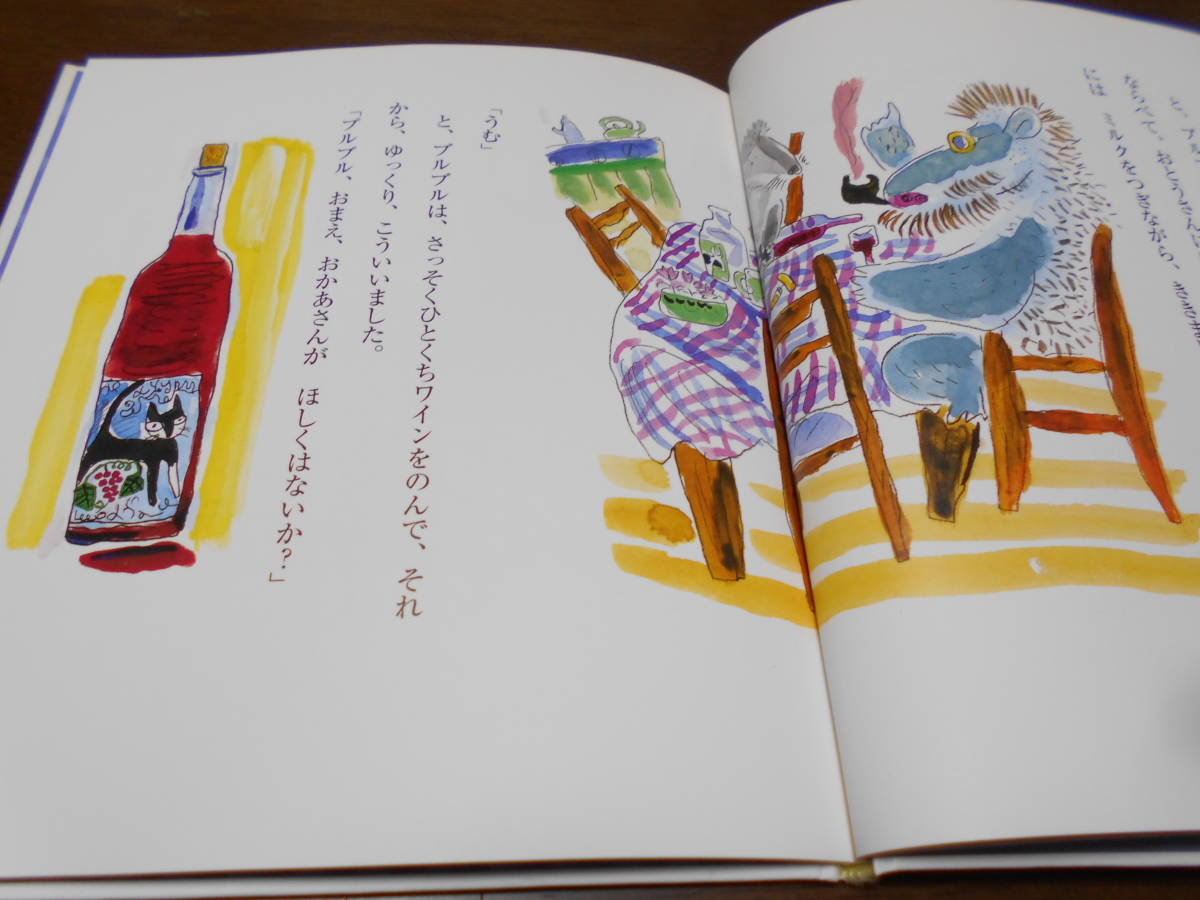 ならべて、おとうさんに
には ミルクをつぎながら、
「うむ」
と、ブルブルは、さっそくひとくちワインをのんで、それ
から、ゆっくり、こういいました。
「プルプル、おまえ、おかあさんが ほしくはないか？」